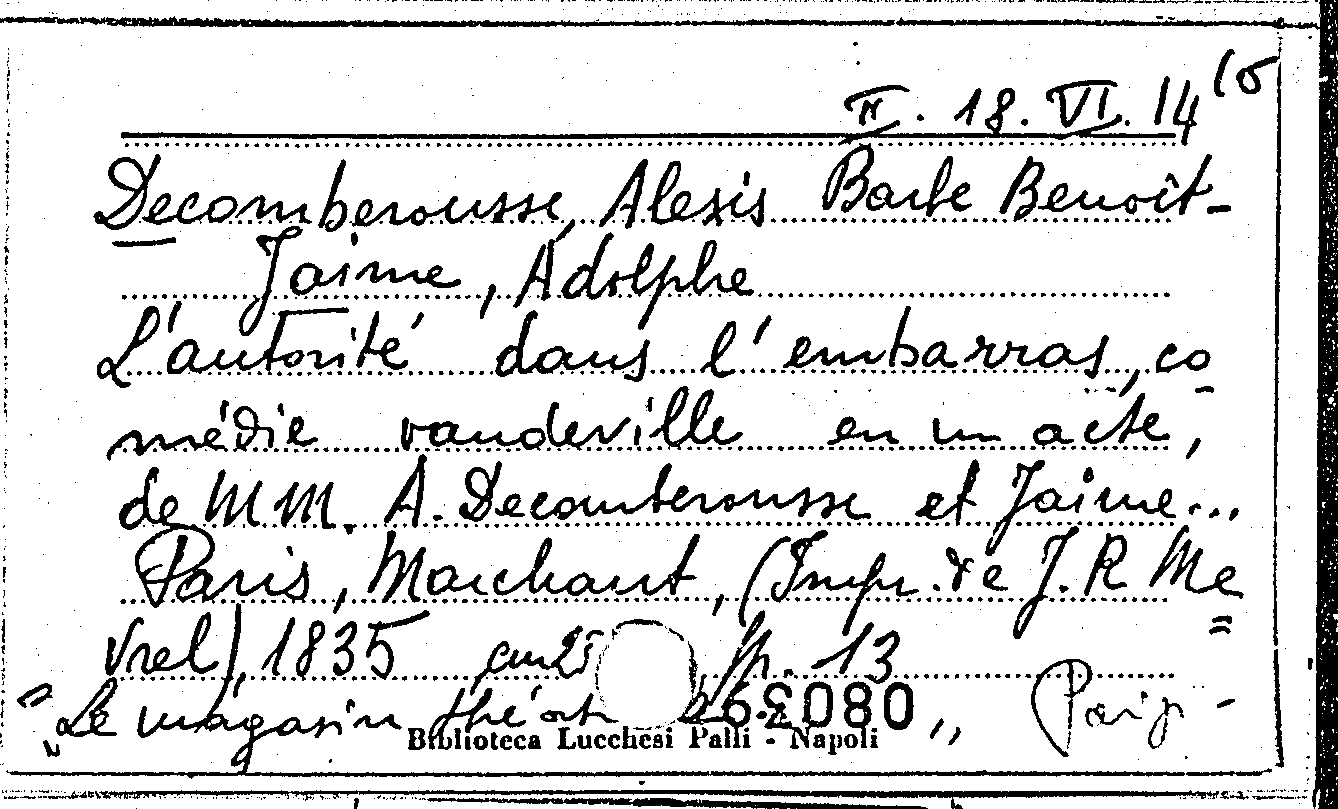 II. 18. VI. 14 (5
Decomberousse, Alexis Barbe Benoît-
Jaime, Adolphe
L'autorité dans l'embarras, co
médie vaudeville en un acte,
de MM. A. Decomberousse et Jaime...
Paris, Marchant, (Impr. de J. R Me
vrel), 1835 cm 25 pp. 13
"Le magasin 080 "
Biblioteca Lucchesi Palli - Napoli